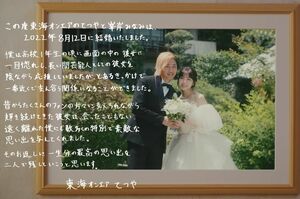 この度東海オンエアのてつやと峯岸みなみは、
2022年8月12日に結婚いたしました。
僕は高校1年生の頃に画面の中の彼女に
一目惚れし、長い間芸能人としての彼女を
陰ながら応援していましたが、とあるきっかけで
一番近くで支え合う関係になることができました。
昔からたくさんのファンの方々に支えられながら
輝き続けてきた彼女は、会ったこともない
遠く離れた僕にも数多くの特別で素敵な
思い出を与えてくれました。
そのお返しに一生分の最高の思い出を
二人で残していこうと思います。
東海オンエア てつや